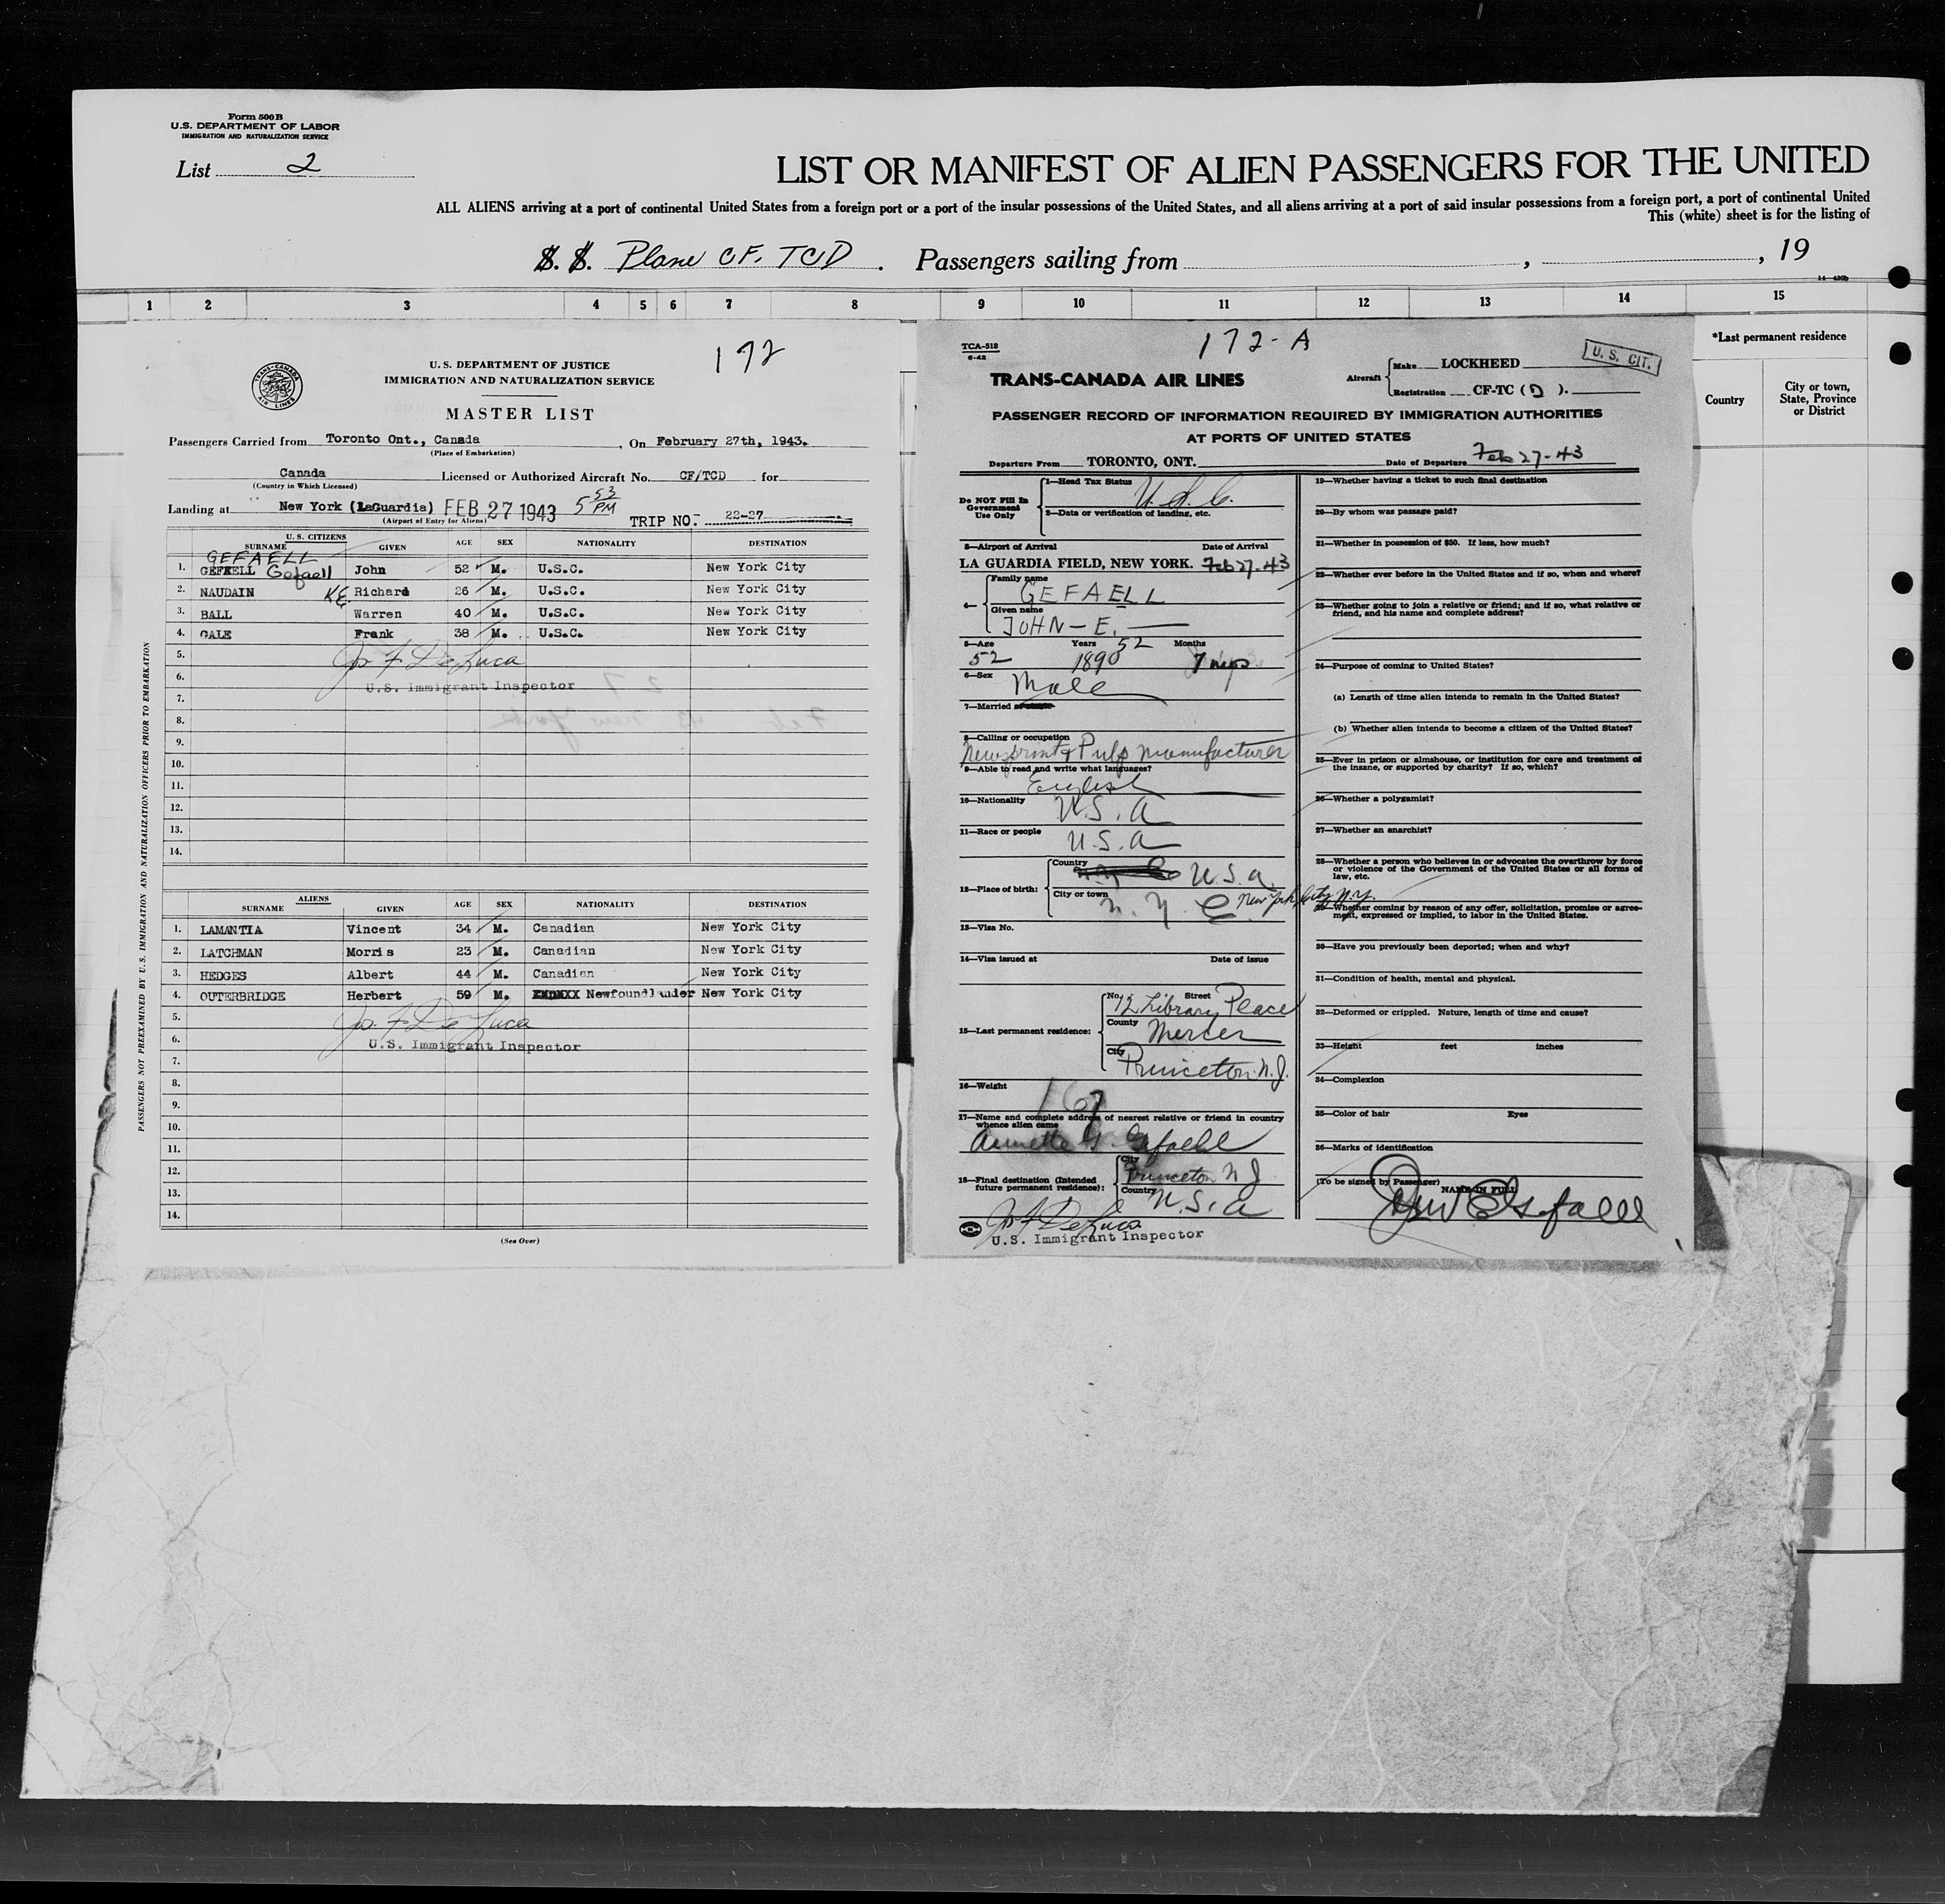 Form 500 B
U.S. DEPARTMENT OF LABOR
IMMIGRATION AND NATURALIZATION SERVICE
List 2
LIST OR MANIFEST OF ALIEN PASSENGERS FOR THE UNITED
ALL ALIENS arriving at a port of continental United States from a foreign port or a port of the insular possessions of the United States, and all aliens arriving at a port of said insular possessions from a foreign port, a port of continental United
This (white) sheet is for the listing of
S. S. Plane CF. TCD . Passengers sailing from , , 19
14—430b
1 2 3 4 5 6 7 8 9 10 11 12 13 14 15
*Last permanent residence
Country
City or town, State, Province or District
192
TRANS-CANADA AIR LINES
U. S. DEPARTMENT OF JUSTICE
IMMIGRATION AND NATURALIZATION SERVICE
MASTER LIST
Passengers Carried from Toronto Ont., Canada , On February 27th, 1943.
(Place of Embarkation)
Canada Licensed or Authorized Aircraft No. CF/TCD for
(Country in Which Licensed)
Landing at New York (LaGuardia) FEB 27 1943 5 53 PM TRIP NO. 22-27
(Airport of Entry for Aliens)
U.S. CITIZENS
SURNAME GIVEN AGE SEX NATIONALITY DESTINATION
GEFAELL
1. GEFAELL Gefaell John 52 M. U.S.C. New York City
2. NAUDAIN KE Richard 26 M. U.S.C. New York City
3. BALL Warren 40 M. U.S.C. New York City
4. GALE Frank 38 M. U.S.C. New York City
5. Jos F De Luca
6. U.S. Immigrant Inspector
7.
8.
9.
10.
11.
12.
13.
14.
ALIENS
SURNAME GIVEN AGE SEX NATIONALITY DESTINATION
1. LAMANTIA Vincent 34 M. Canadian New York City
2. LATCHMAN Morris 23 M. Canadian New York City
3. HEDGES Albert 44 M. Canadian New York City
4. OUTERBRIDGE Herbert 59 M. Newfoundlander New York City
5. Jos. F De Luca
6. U.S. Immigrant Inspector
7.
8.
9.
10.
11.
12.
13.
14.
(See Over)
PASSENGERS NOT PREEXAMINED BY U.S. IMMIGRATION AND NATURALIZATION OFFICERS PRIOR TO EMBARKATION
TCA-518
6-42
172-A
U. S. CIT.
TRANS-CANADA AIR LINES
Aircraft Make LOCKHEED
Registration CF-TC ( D ).
PASSENGER RECORD OF INFORMATION REQUIRED BY IMMIGRATION AUTHORITIES
AT PORTS OF UNITED STATES
Departure From TORONTO, ONT. Date of Departure Feb 27-43
Do NOT Fill In Government Use Only
1—Head Tax Status U.S.C.
2—Data or verification of landing, etc.
3—Airport of Arrival Date of Arrival
LA GUARDIA FIELD, NEW YORK. Feb 27-43
4— Family name
GEFAELL
Given name
JOHN - E.
5—Age Years 52 Months
52 1890 7 mos
6—Sex Male
7—Married
8—Calling or occupation
Newsprint & Pulp manufacturer
9—Able to read and write what languages?
English
10—Nationality U.S.A
11—Race or people U.S.A
12—Place of birth: Country U.S.A.
City or town N.Y.C New York City N.Y.
13—Visa No.
14—Visa issued at Date of issue
15—Last permanent residence: No. Street 12 Library Place
County Mercer
City Princeton. N.J.
16—Weight 167
17—Name and complete address of nearest relative or friend in country whence alien came
Annette G. Gefaell
18—Final destination (Intended future permanent residence): City Princeton N J
Country U.S.A
Jos F De Luca
U.S. Immigrant Inspector
19—Whether having a ticket to such final destination
20—By whom was passage paid?
21—Whether in possession of $50. If less, how much?
22—Whether ever before in the United States and if so, when and where?
23—Whether going to join a relative or friend; and if so, what relative or friend, and his name and complete address?
24—Purpose of coming to United States?
(a) Length of time alien intends to remain in the United States?
(b) Whether alien intends to become a citizen of the United States?
25—Ever in prison or almshouse, or institution for care and treatment of the insane, or supported by charity? If so, which?
26—Whether a polygamist?
27—Whether an anarchist?
28—Whether a person who believes in or advocates the overthrow by force or violence of the Government of the United States or all forms of law, etc.
29—Whether coming by reason of any offer, solicitation, promise or agreement, expressed or implied, to labor in the United States.
30—Have you previously been deported; when and why?
31—Condition of health, mental and physical.
32—Deformed or crippled. Nature, length of time and cause?
33—Height feet inches
34—Complexion
35—Color of hair Eyes
36—Marks of identification
(To be signed by Passenger) NAME IN FULL
John E Gefaell